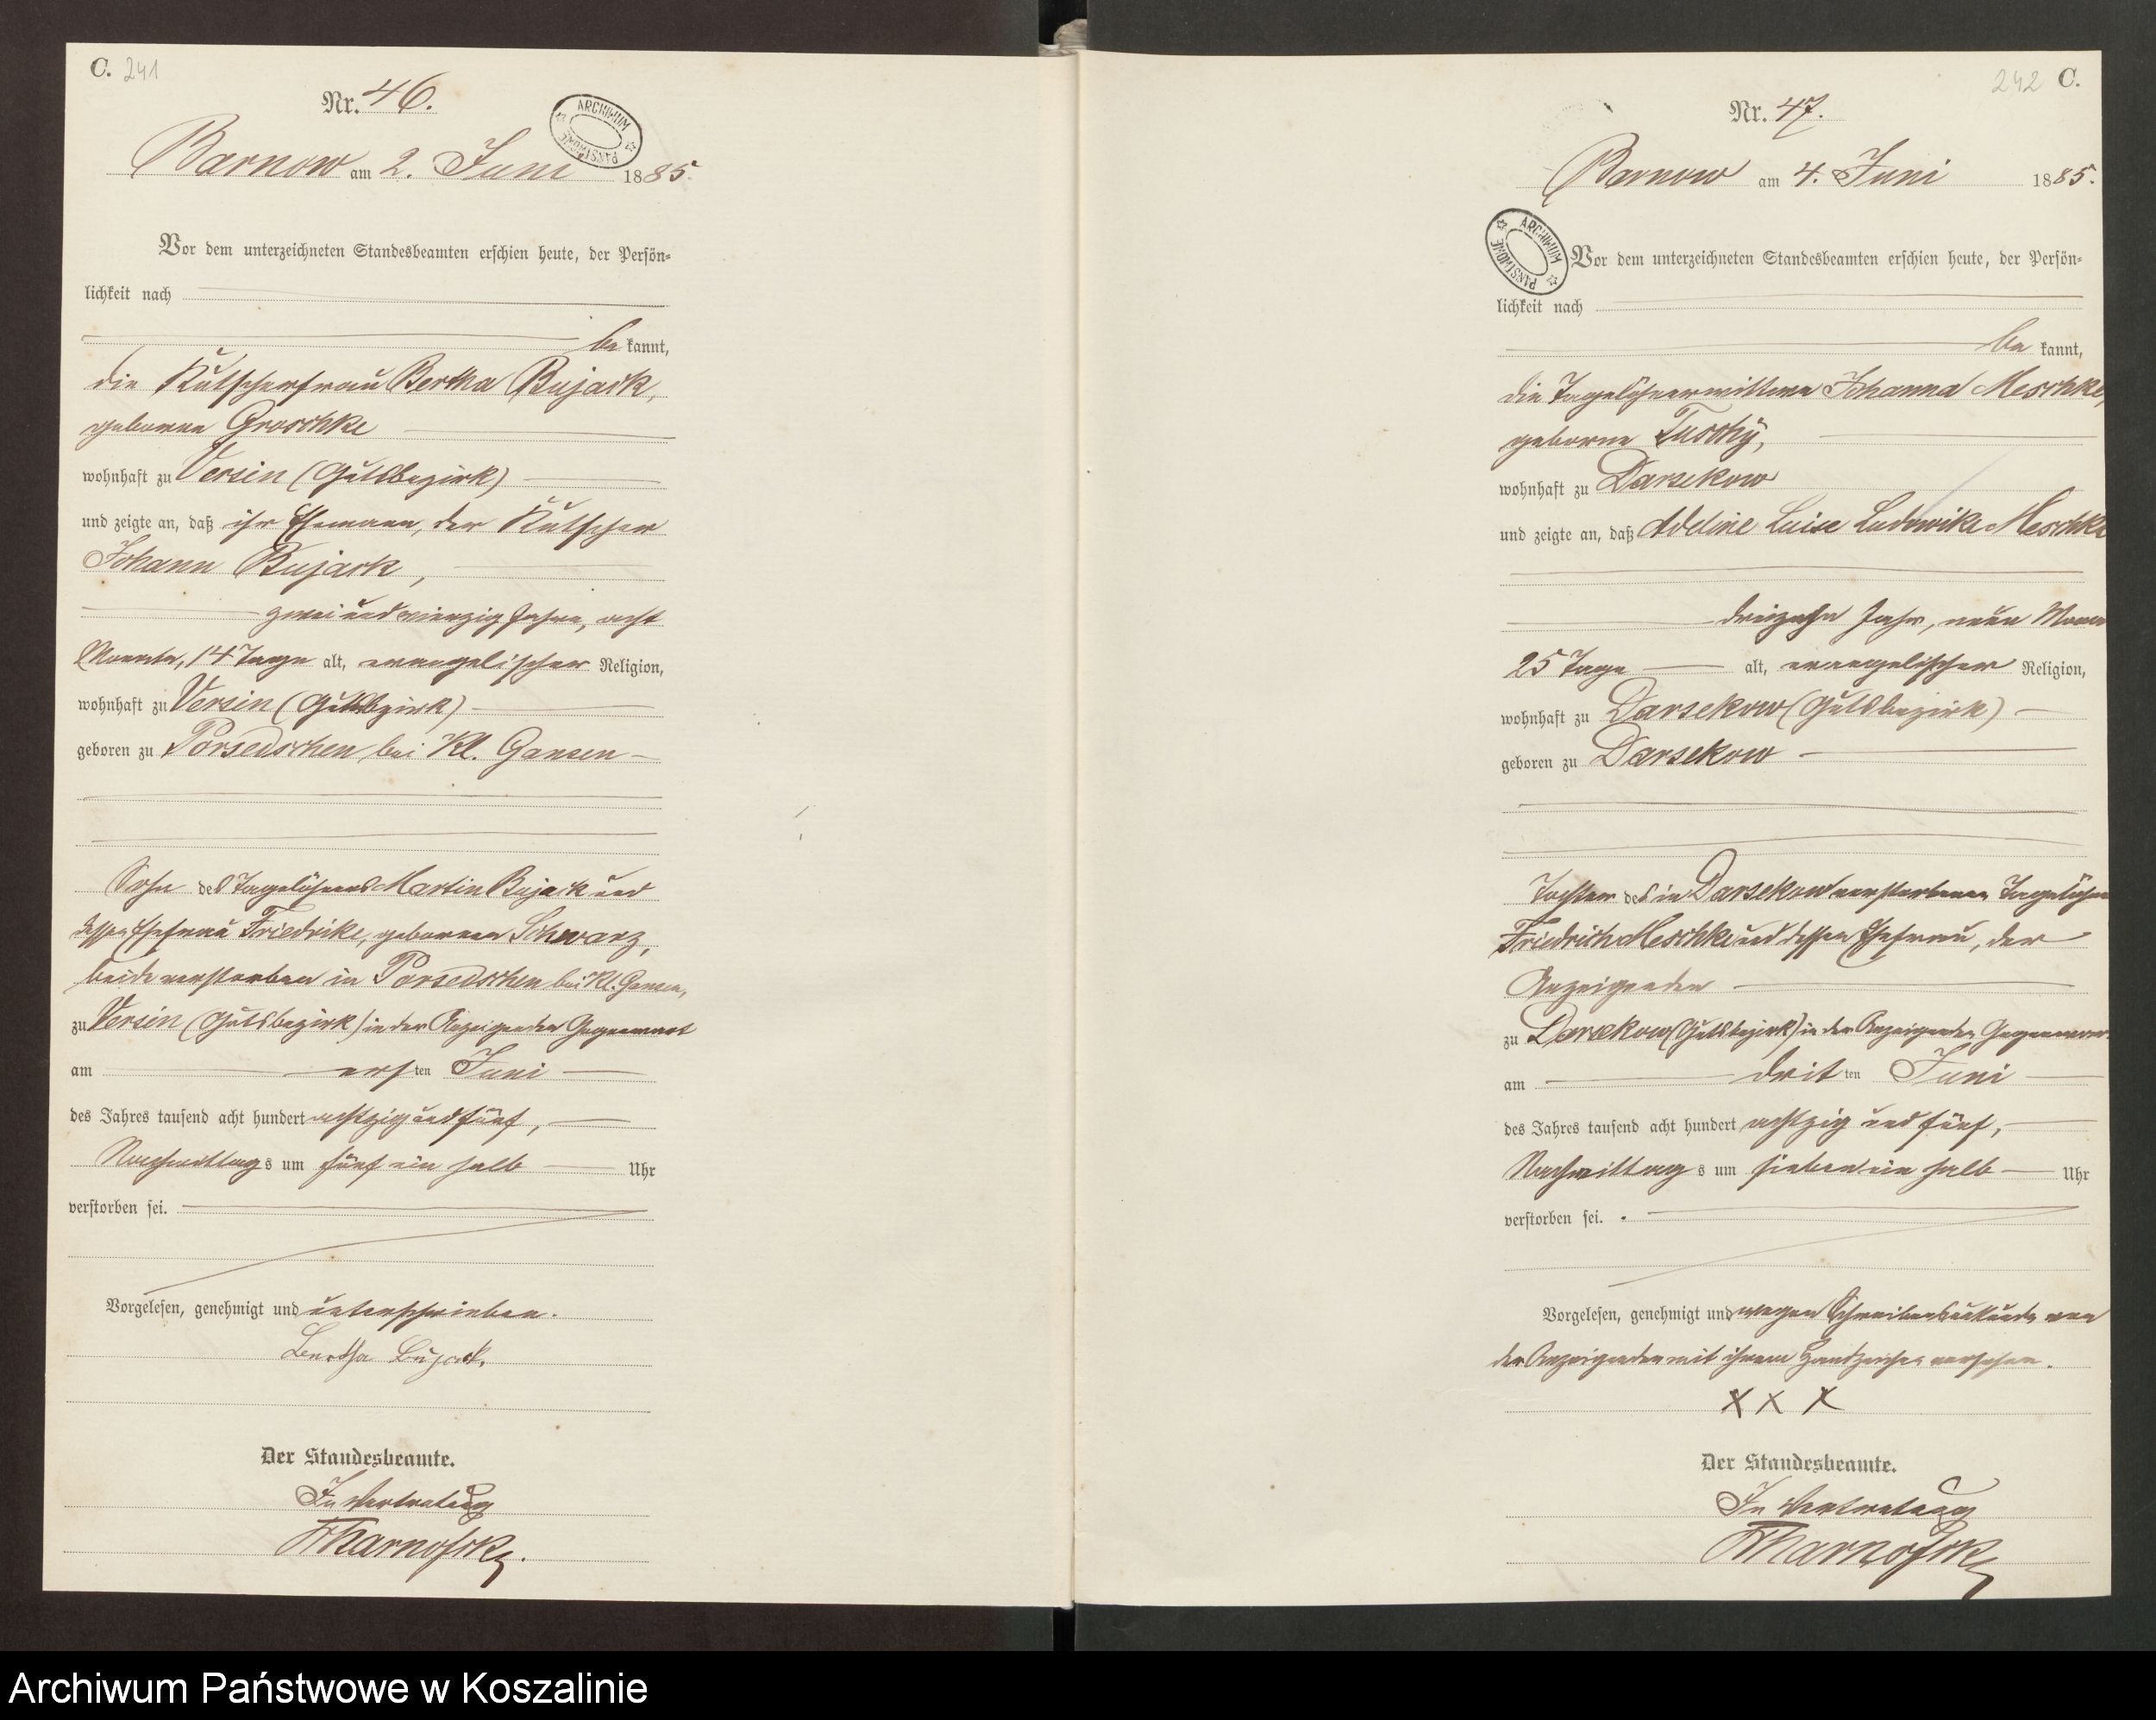 C. 241
Nr. 46.
ARCHIWUM PAŃSTWOWE
Barnow am 2. Juni 1885.
Vor dem unterzeichneten Standesbeamten erschien heute, der Persön-
lichkeit nach
bekannt,
die Kutscherfrau Bertha Bujack,
geborene Groschke
wohnhaft zu Versin (Gutsbezirk)
und zeigte an, daß ihr Ehemann, der Kutscher
Johann Bujack,
zwei und vierzig Jahre, acht
Monate, 14 Tage alt, evangelischer Religion,
wohnhaft zu Versin (Gutsbezirk)
geboren zu Porsedschen bei Kl. Gansen
Sohn des Tagelöhners Martin Bujack und
dessen Ehefrau Friedrike, geborenen Schwarz,
beide verstorben in Porsedschen bei Kl. Gansen,
zu Versin (Gutsbezirk) in der Anzeigenden Gegenwart
am ersten Juni
des Jahres tausend acht hundert achtzig und fünf,
Nachmittags um fünf ein halb Uhr
verstorben sei.
Vorgelesen, genehmigt und unterschrieben.
Bertha Bujack.
Der Standesbeamte.
In Vertretung
242 C.
Nr. 47.
Barnow am 4. Juni 1885.
ARCHIWUM PAŃSTWOWE
Vor dem unterzeichneten Standesbeamten erschien heute, der Persön-
lichkeit nach
bekannt,
die Tagelöhnerwittwe Johanna Meschke,
geborne Tuschy,
wohnhaft zu Darsekow
und zeigte an, daß Adeline Luise Ludwike Meschke
dreizehn Jahr, neun Mona
25 Tage alt, evangelischer Religion,
wohnhaft zu Darsekow (Gutsbezirk)
geboren zu Darsekow
Tochter des in Darsekow verstorbenen Tagelöhne
Friedrich Meschke und dessen Ehefrau, der
Anzeigenden
zu Darsekow (Gutsbezirk) in der Anzeigenden Gegenwar
am dritten Juni
des Jahres tausend acht hundert achtzig und fünf,
Nachmittags um sieben ein halb Uhr
verstorben sei.
Vorgelesen, genehmigt und wegen Schreibensunkunde von
der Anzeigenden mit ihrem Handzeichen versehen.
X X X
Der Standesbeamte.
In Vertretung
Archiwum Państwowe w Koszalinie